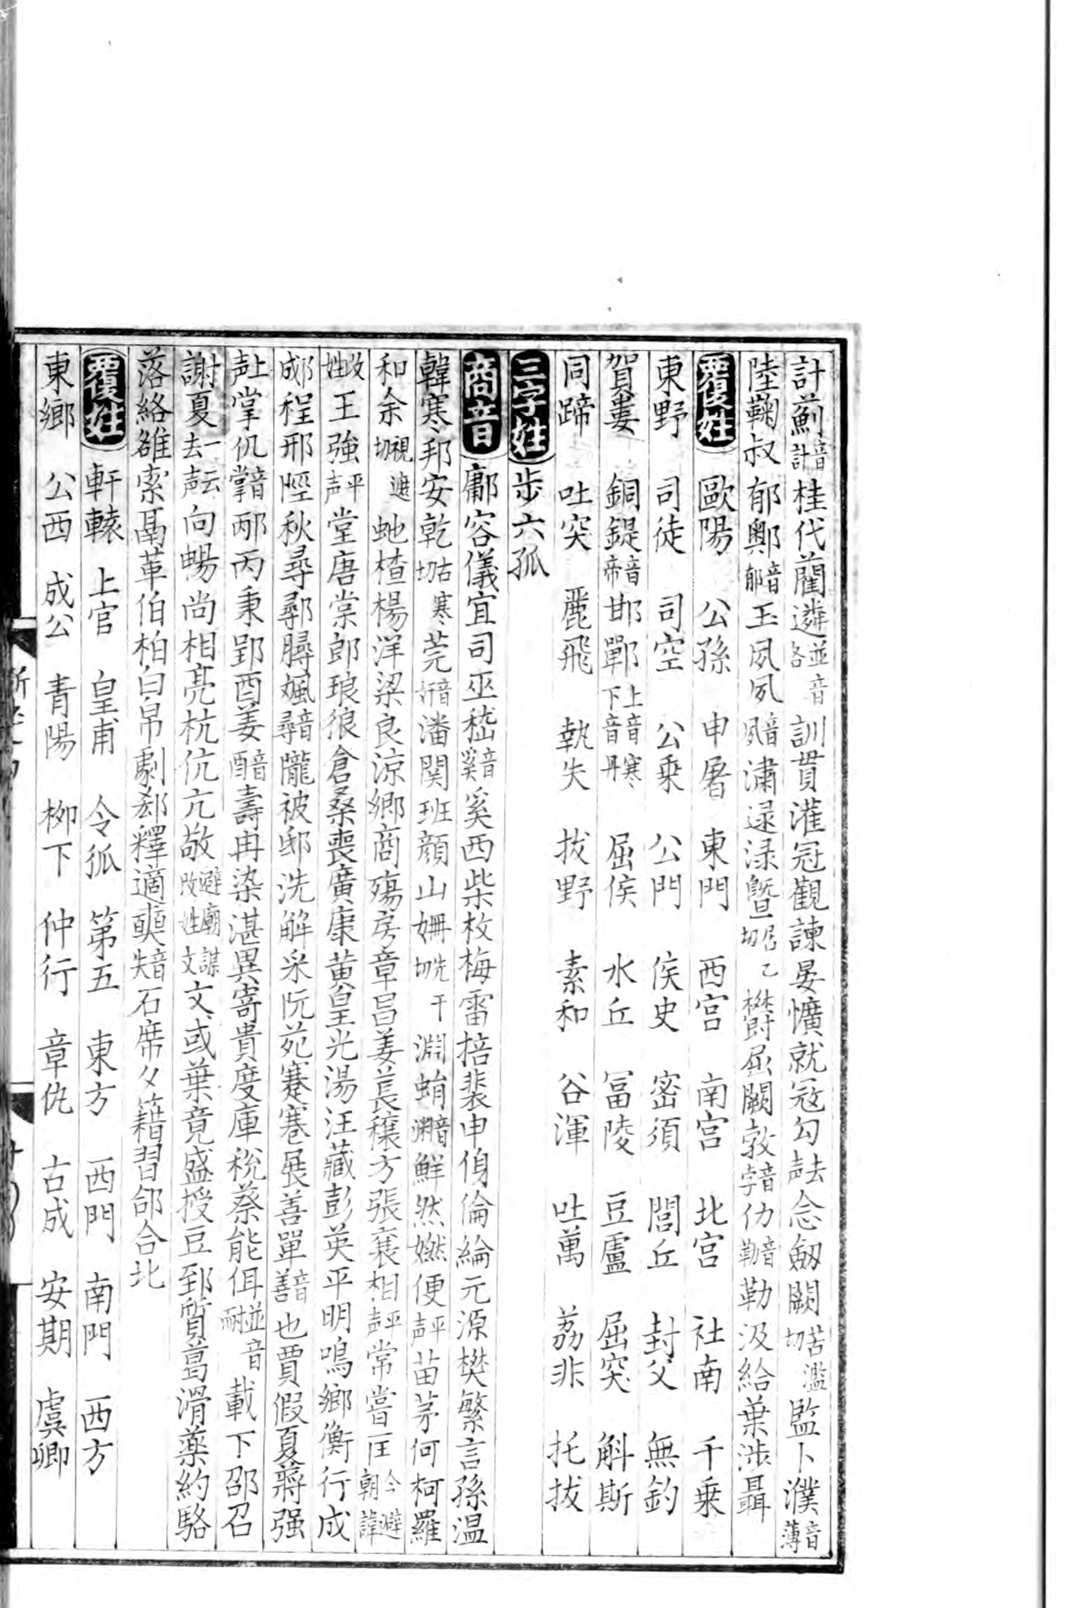 計薊音計桂代藺遴並音吝訓貫灌冠觀諫晏懭就冦勾去声念劒闞苦濫切監卜濮音薄
陸鞠叔郁鄭音郁玉夙夙音夙潚逯渌曁居乙切欎屈闕敦音字仂音勒勒汲給葉涉聶
覆姓 歐陽 公孫 申屠 東門 西宫 南宫 北宫 社南 千乗
東野 司徒 司空 公乗 公門 侯史 密須 閭丘 封父 無鈞
賀婁 銅鍉音帝 邯鄲上音寒下音丹 屈侯 水丘 冨陵 豆盧 屈突 斛斯
同蹄 吐突 麗飛 執失 拔野 素和 谷渾 吐萬 荔非 托拔
三字姓 步六孤
商音 鄘容儀宜司巫嵇音奚奚西柴枚梅雷掊裴申伸倫綸元源樊繁言孫温
韓寒邦安乾古寒切莞音潘関班顔山姍先干切淵蛸音渊鮮然嬿便平声苗茅何柯羅
和余視遮切虵楂楊洋梁良凉鄉商殤房章昌姜萇穰方張襄相平声常甞匡今避朝諱
改姓王強平声堂唐棠郎琅狼倉桑喪廣康黄皇光湯汪藏彭英平明鳴鄉衡行成
郕程邢陘秋尋鄩䣝颯音尋隴被邸洗解采阮苑蹇寋展善單音善也賈假夏蔣强
上声掌仉音掌邴丙秉郢酉姜音酉壽冉染湛異寄貴度庫稅蔡能佴並音耐載下邵召
謝夏一云去声向暢尚相亮杭伉亢敬避廟諱改姓文文或葉竟盛授豆郅質葛滑藥約駱
落絡雒索鬲革伯柏白帛劇郄釋適奭音失石席夕籍習郃合北
覆姓 軒轅 上官 皇甫 令狐 第五 東方 西門 南門 西方
東鄉 公西 成公 青陽 栁下 仲行 章仇 古成 安期 虞卿